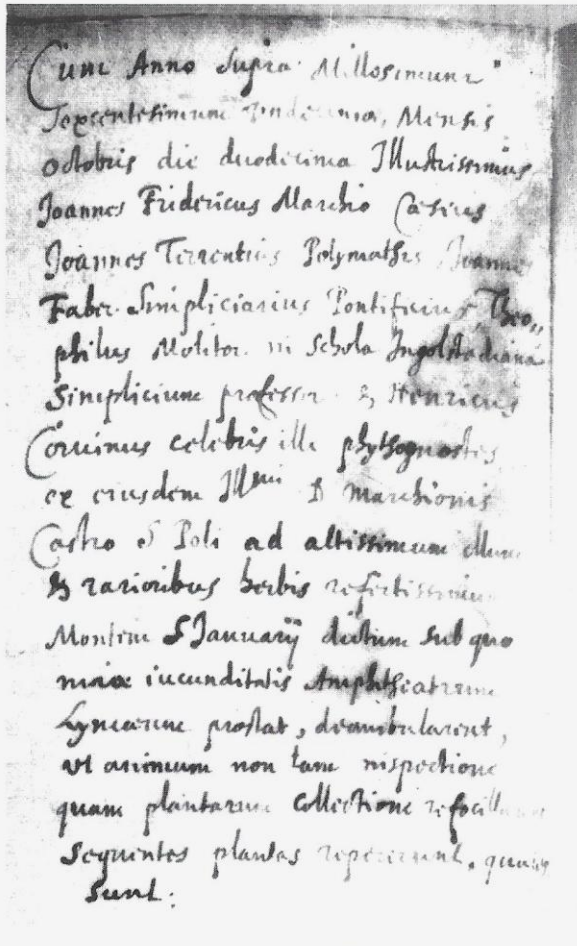 Cum Anno supra Millesimum
sexcentesimum undecimo, Mensis
octobris die duodecima Illustrissimus
Joannes Fridericus Marchio Cæsius
Joannes Terrentius Polymathes Joannes
Faber Simpliciarius Pontificius, Theo„
philus Molitor in Schola Ingolstadiana
Simplicium professor & Henricus
Corvinus celebris ille phythognostes
ex eiusdem Illmi D Marchionis
Castro S Poli ad altissimum illum
& rarioribus herbis refertissimum
Montem S Januarij dictum sub quo
miræ iucunditatis Amphitheatrum
Lynceum prostat, deambularent,
ut animum non tam inspectione
quam plantarum collectione refocillarent
sequentes plantas repererunt, quæ
sunt: